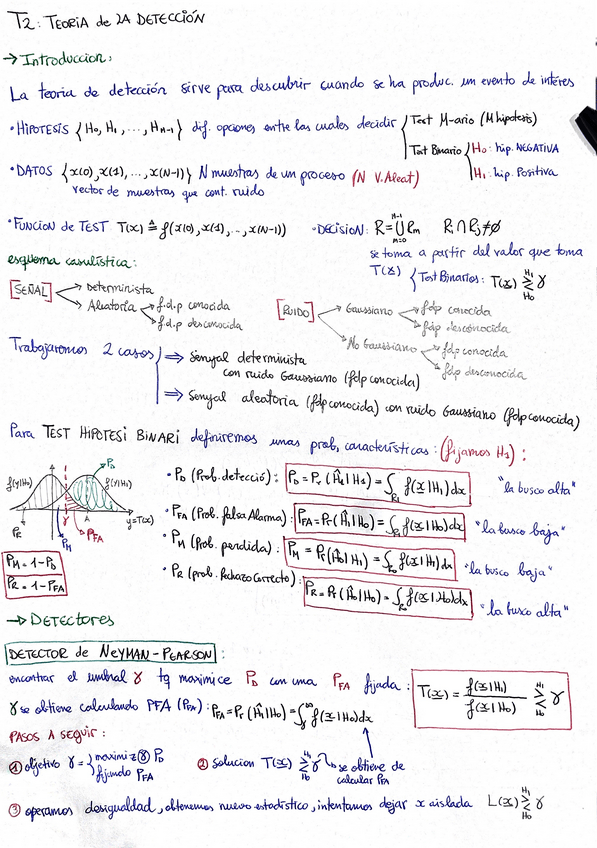 T2: TEORIA de LA DETECCIÓN
→ Introduccion:
La teoria de detección sirve para descubrir cuando se ha produc. un evento de interés
• HIPOTESIS {H0, H1, ..., HM-1} dif. opciones entre las cuales decidir
Test M-ario (M hipotesis)
Test Binario
H0: hip. NEGATIVA
H1: hip. Positiva
• DATOS {x(0), x(1), ..., x(N-1)} N muestras de un proceso (N V.Aleat)
vector de muestras que cont. ruido
• FUNCION de TEST T(x) ≜ f(x(0), x(1), .., x(N-1))
• DECISION: R = ⋃ Rm Ri ∩ Rj ≠ ∅
M-1
m=0
se toma a partir del valor que toma
T(x) { Test Binarios: T(x) ≷ γ
H1
H0
esquema casuística:
[SEÑAL]
Determinista
Aleatoria
f.d.p conocida
f.d.p desconocida
[RUIDO]
Gaussiano
fdp conocida
fdp desconocida
No Gaussiano
fdp conocida
fdp desconocida
Trabajaremos 2 casos
⇒ Senyal determinista
con ruido Gaussiano (fdp conocida)
⇒ Senyal aleatoria (fdp conocida) con ruido Gaussiano (fdp conocida)
Para TEST HIPOTESI BINARI definiremos unas prob. características: (fijamos H1):
f(y|H0)
f(y|H1)
PD
PR
PM
γ
PFA
A
y=T(x)
PM = 1-PD
PR = 1-PFA
• PD (Prob. detecció): PD = Pr(Ĥ1|H1) = ∫R1 f(x|H1)dx "la busco alta"
• PFA (Prob. falsa Alarma): PFA = Pr(Ĥ1|H0) = ∫R1 f(x|H0)dx "la busco baja"
• PM (Prob. perdida): PM = Pr(Ĥ0|H1) = ∫R0 f(x|H1)dx "la busco baja"
• PR (prob. Rechazo Correcto): PR = Pr(Ĥ0|H0) = ∫R0 f(x|H0)dx "la busco alta"
→ Detectores
DETECTOR de NEYMAN-PEARSON:
encontrar el umbral γ tq maximice PD con una PFA fijada:
T(x) = f(x|H1) / f(x|H0) ≷ γ
H1
H0
γ se obtiene calculando PFA (PFA): PFA = Pr(Ĥ1|H0) = ∫γ∞ f(x|H0)dx
PASOS A seguir:
① objetivo γ = { maximiz PD
fijando PFA
② Solucion T(x) ≷ γ
H1
H0
se obtiene de
calcular PFA
③ operamos desigualdad, obtenemos nuevo estadístico, intentamos dejar x aislada L(x) ≷ γ
H1
H0